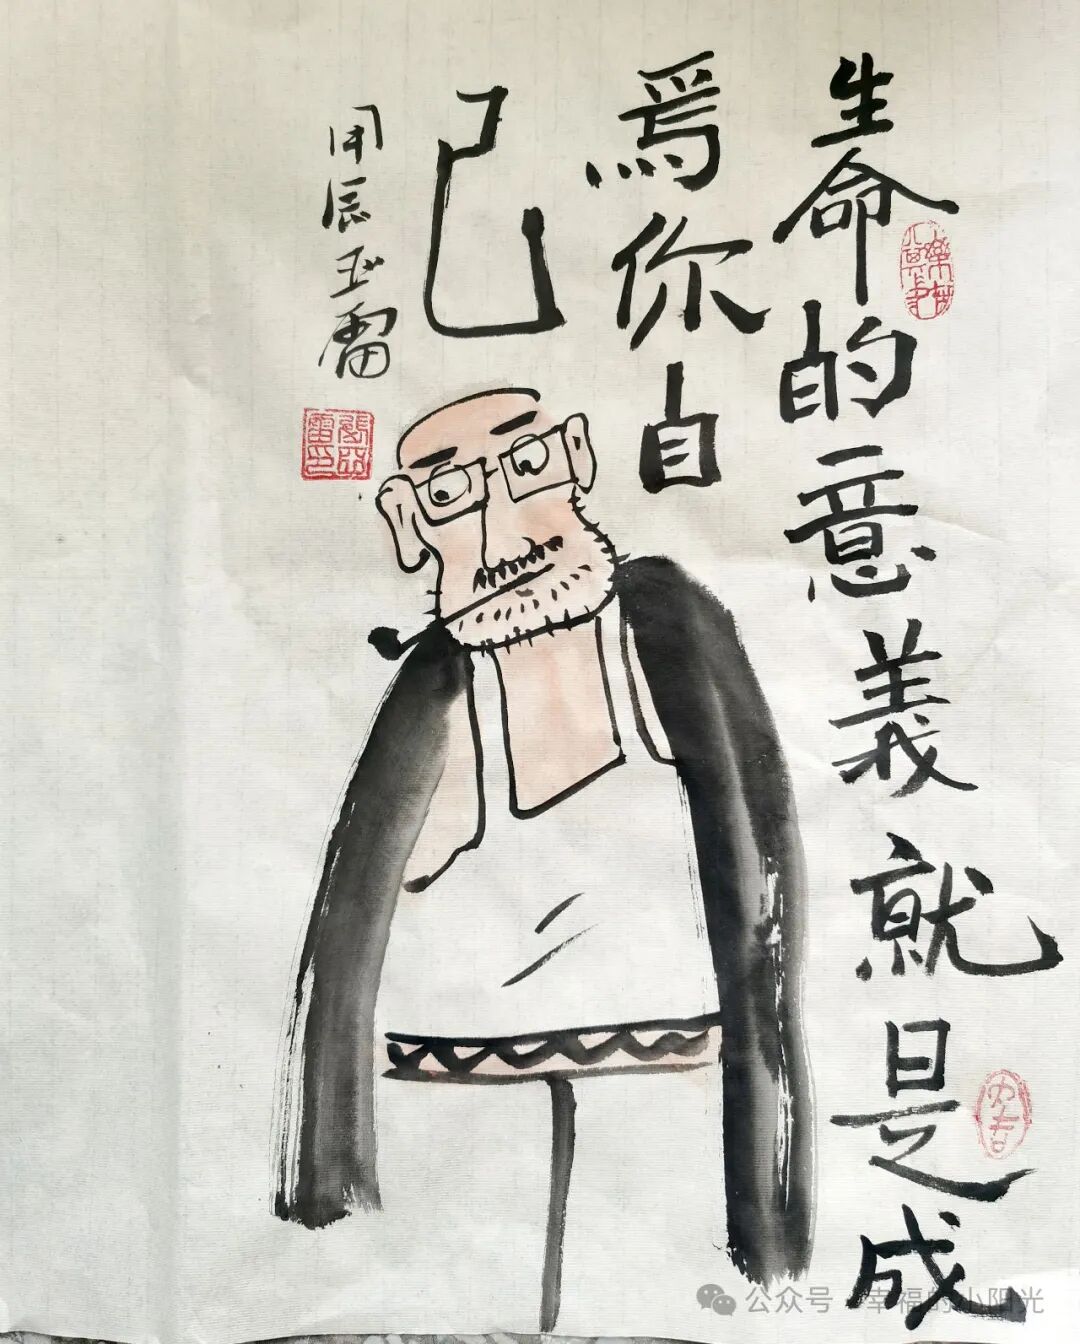 生命的意義就是成
為你自
己
甲辰亚雷
公众号 幸福的小阳光